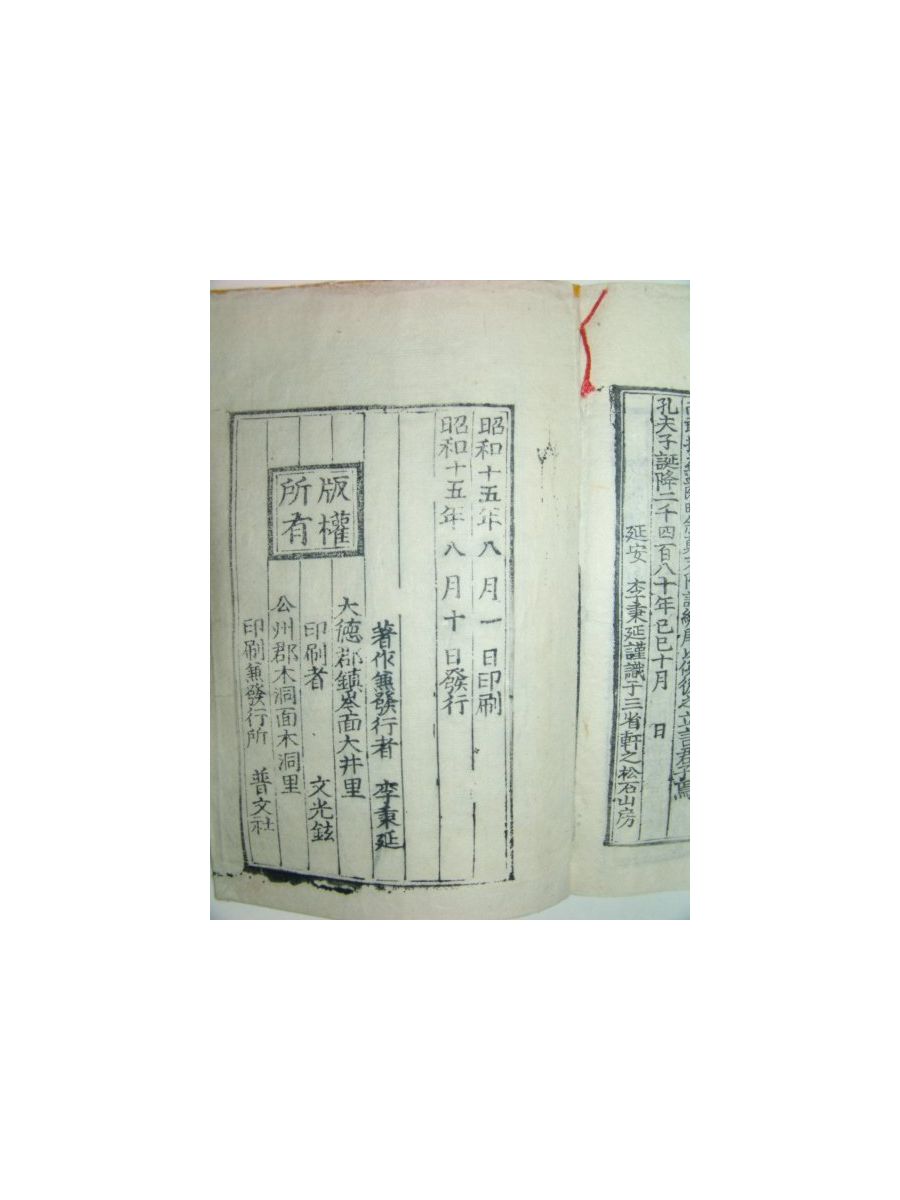 立言君子焉
孔夫子誕降二千四百八十年己巳十月 日
延安 李秉延謹識于三省軒之松石山房
昭和十五年八月一日印刷
昭和十五年八月十日發行
著作兼發行者 李秉延
大德郡鎭岑面大井里
印刷者 文光鉉
公州郡木洞面木洞里
印刷兼發行所 普文社
版權
所有